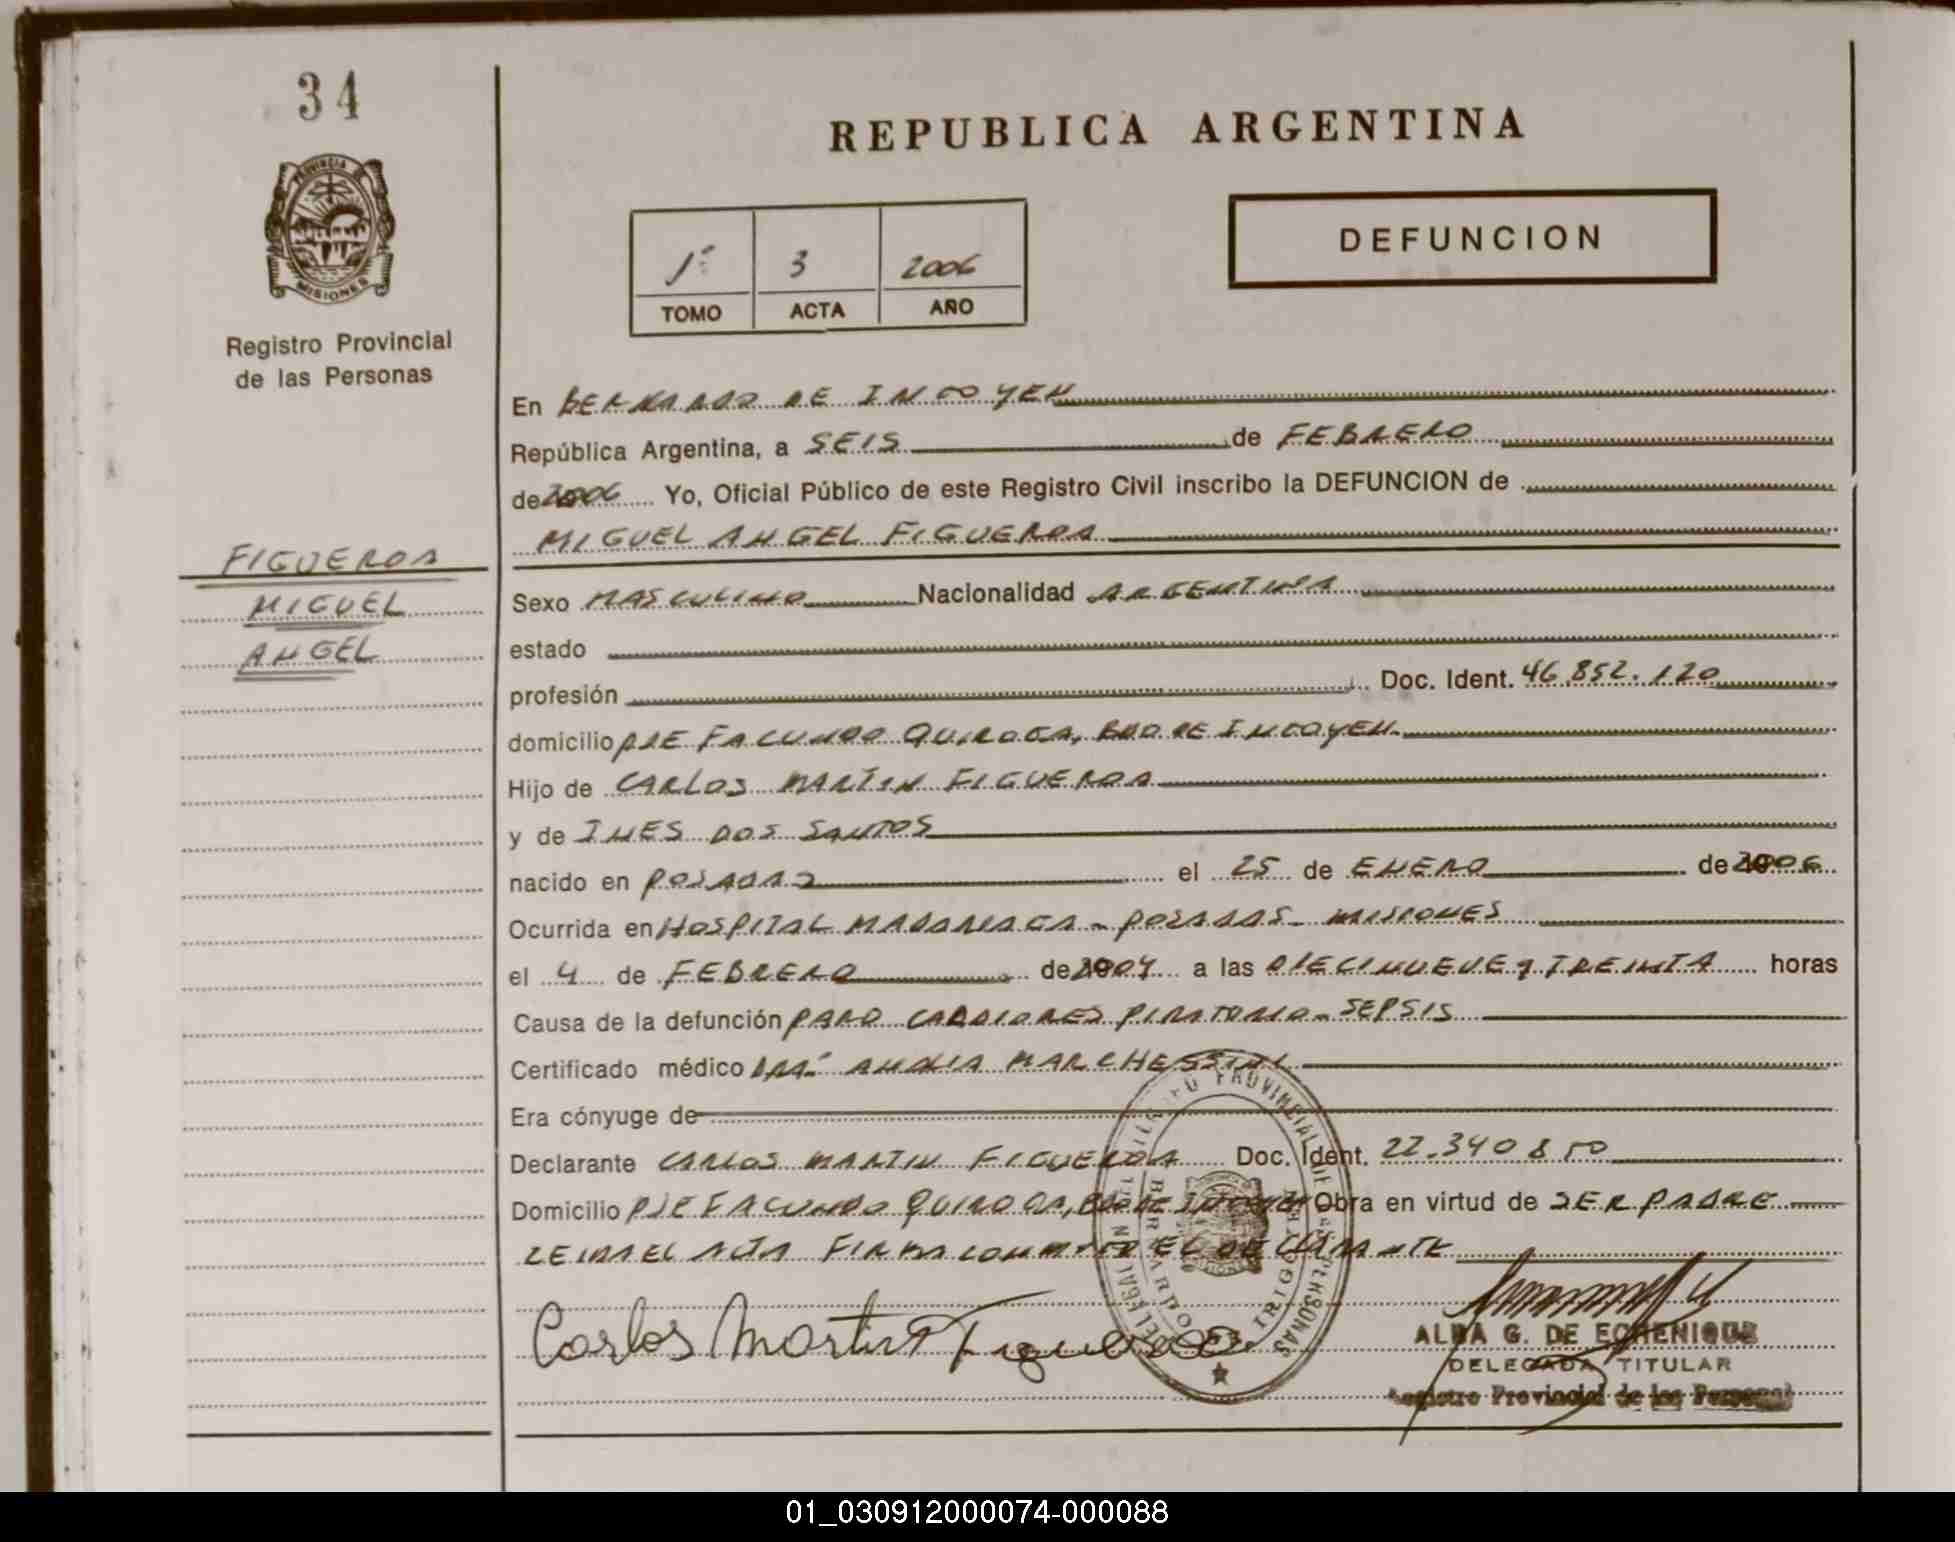 34
PROVINCIA DE
MISIONES
Registro Provincial
de las Personas
FIGUEROA
MIGUEL
ANGEL
REPUBLICA ARGENTINA
1º 3 2006
TOMO ACTA AÑO
DEFUNCION
En BERNARDO DE IRIGOYEN
República Argentina, a SEIS de FEBRERO
de 2006 Yo, Oficial Público de este Registro Civil inscribo la DEFUNCION de
MIGUEL ANGEL FIGUEROA
Sexo MASCULINO Nacionalidad ARGENTINA
estado
profesión Doc. Ident. 46.852.120
domicilio PJE FACUNDO QUIROGA, BDO DE IRIGOYEN
Hijo de CARLOS MARTIN FIGUEROA
y de INES DOS SANTOS
nacido en POSADAS el 25 de ENERO de 2006
Ocurrida en HOSPITAL MADARIAGA - POSADAS - MISIONES
el 4 de FEBRERO de a las DIECINUEVE y TREINTA horas
Causa de la defunción PARO CARDIORESPIRATORIO - SEPSIS
Certificado médico DRA. MARCHESSINI
Era cónyuge de
Declarante CARLOS MARTIN FIGUEROA Doc. Ident. 22.340.850
Domicilio PJE FACUNDO QUIROGA, BDO DE IRIGOYEN Obra en virtud de SER PADRE
LEIDA EL ACTA FIRMA CONMIGO EL DECLARANTE
Carlos Martin Figueroa
ALBA G. DE ECHENIQUE
DELEGADA TITULAR
Registro Provincial de las Personas
01_030912000074-000088